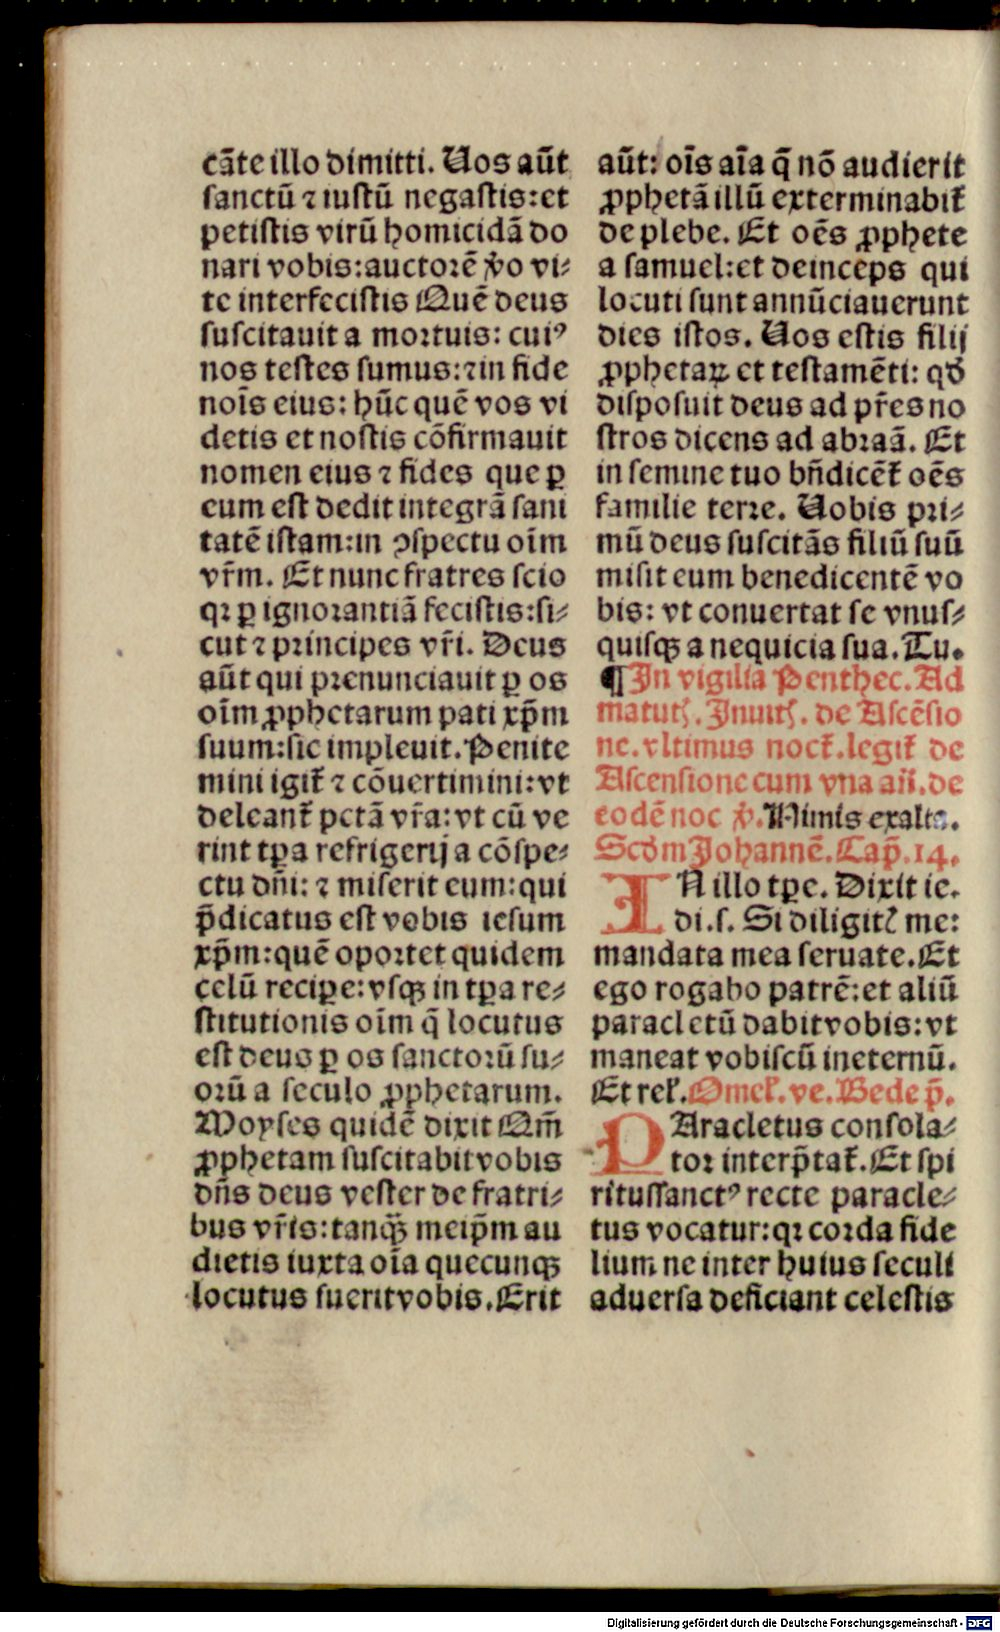 cāte illo dimitti. Uos aūt
sanctū ⁊ iustū negastis: et
petistis virū homicidā do
nari vobis: auctorē v̊o vi⸗
te interfecistis Quē deus
suscitauit a mortuis: cuiꝰ
nos testes sumus: ⁊ in fide
noīs eius: hūc quē vos vi
detis et nostis cōfirmauit
nomen eius ⁊ fides que ꝑ
eum est dedit integrā sani
tatē istam: in ꝯspectu oīm
vr̄m. Et nunc fratres scio
qꝛ ꝑ ignorantiā fecistis: si⸗
cut ⁊ principes vr̄i. Deus
aūt qui prenunciauit ꝑ os
oīm ꝓphetarum pati xp̄m
suum: sic impleuit. Penite
mini igit̄ ⁊ cōuertimini: vt
deleant̄ pctā vr̄a: vt cū ve
rint tꝑa refrigerij a cōspe⸗
ctu dn̄i: ⁊ miserit eum: qui
p̄dicatus est vobis iesum
xp̄m: quē oportet quidem
celū recipe: vsqꝫ in tꝑa re⸗
stitutionis oīm q̄ locutus
est deus ꝑ os sanctorū su⸗
orū a seculo ꝓphetarum.
Moyses quidē dixit Qm̄
ꝓphetam suscitabit vobis
dn̄s deus vester de fratri⸗
bus vr̄is: tanqꝫ̄ meip̄m au
dietis iuxta oīa quecunqꝫ
locutus fuerit vobis. Erit
aūt: oīs aīa q̄ nō audierit
ꝓphetā illū exterminabit̄
de plebe. Et oēs ꝓphete
a samuel: et deinceps qui
locuti sunt annūciauerunt
dies istos. Uos estis filij
ꝓphetaꝝ et testamēti: qđ
disposuit deus ad pr̄es no
stros dicens ad abraā. Et
in semine tuo bn̄dicēt̄ oēs
familie terre. Uobis pri⸗
mū deus suscitās filiū suū
misit eum benedicentē vo
bis: vt conuertat se vnus⸗
quisqꝫ a nequicia sua. Tu.
¶ In vigilia Penthec. Ad
matutꝭ. Inuitꝭ. de Ascēsio
ne. vltimus noct̄. legit̄ de
Ascensione cum vna añ. de
eodē noc ꝟ. Nimis exalta.
Scďm Johannē. Cap̄. 14.
IN illo tꝑe. Dixit ie.
di. s. Si diligitꝭ me:
mandata mea seruate. Et
ego rogabo patrē: et aliū
paracletū dabit vobis: vt
maneat vobiscū in eternū.
Et rel̄. Omel̄. ve. Bede p̄.
PAracletus consola⸗
tor interp̄tat̄. Et spi
ritussanctꝰ recte paracle⸗
tus vocatur: qꝛ corda fide
lium ne inter huius seculi
aduersa deficiant celestis
Digitalisierung gefördert durch die Deutsche Forschungsgemeinschaft - DFG